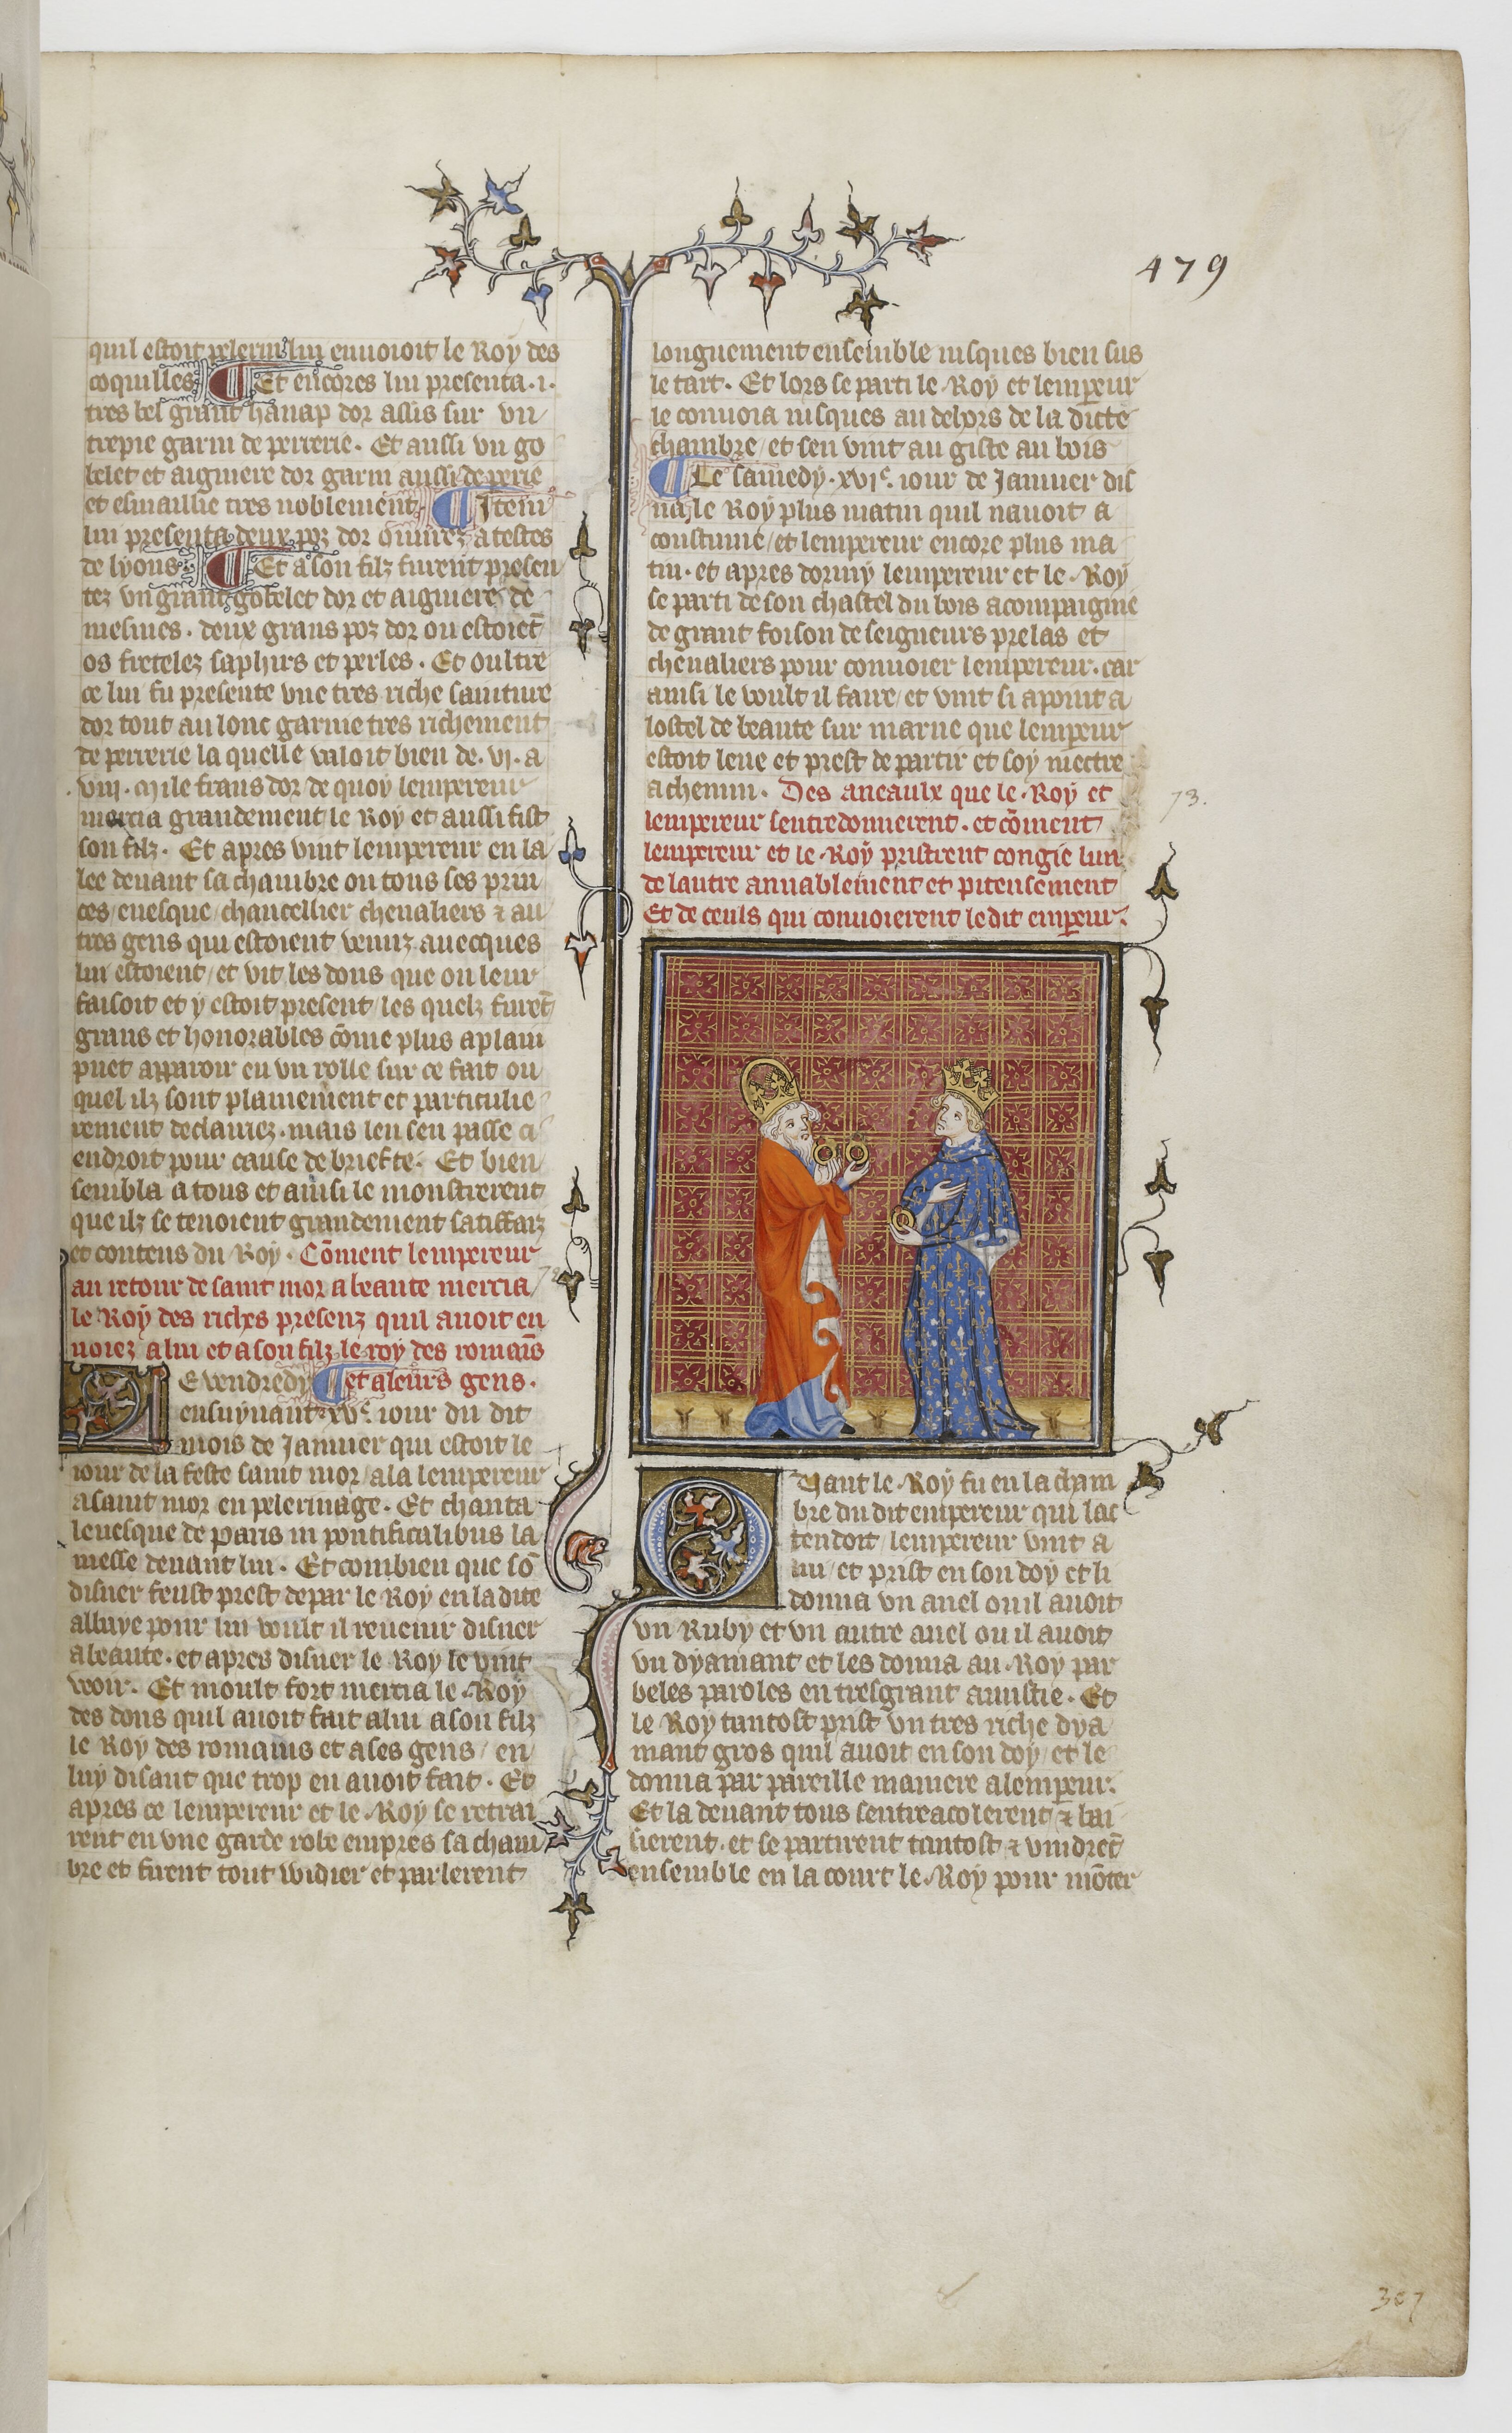 479
quil estoit pelerin lui enuoioit le Roy des
coquilles ¶ Et encores lui presenta .i.
tres bel grant hanap dor assis sur vn
trepie garni de perrerie. Et aussi vn go
belet et aiguiere dor garni aussi de perie
et esmaillie tres noblement ¶ Item
lui presenta deux poz dor quurez a testes
de lyons ¶ Et a son filz furent presen
tez vn grant gobelet dor et aiguiere de
mesmes. deux grans poz dor ou estoiēt
os fretelez saphirs et perles. Et oultre
ce lui fu presente vne tres riche sainture
dor tout au lonc garnie tres richement
de perrerie la quelle valoit bien de .vj. a
viij. mile frans dor de quoy lempereur
mercia grandement le Roy et aussi fist
son filz. Et apres vint lempereur en la
lee deuant sa chambre ou tous ses prin
ces euesque chancellier cheualiers & au
tres gens qui estoient venuz auecques
lui estoient et vit les dons que on leur
faisoit et y estoit present les quelz furēt
grans et honorables cōme plus a plain
puet apparoir en vn rolle sur ce fait ou
quel ilz sont plainement et particulie
rement declairiez. mais len sen passe ci
endroit pour cause de briefte. Et bien
sembla a tous et ainsi le monstrerent
que ilz se tenoient grandement satiffaiz
et contens du Roy. Cōment lempereur
au retour de saint mor a beaute mercia
le Roy des riches presenz quil auoit en
uoiez a lui et a son filz le roy des romaīs
¶ et a leurs gens.
Le vendredy
ensuyuant xve. iour du dit
mois de Januier qui estoit le
iour de la feste saint mor ala lempereur
a saint mor en pelerinage. Et chanta
leuesque de paris in pontificalibus la
messe deuant lui. Et combien que sō
disner feust prest de par le Roy en la dite
abbaye pour lui voult il reuenir disner
a beaute. et apres disner le Roy le vint
veoir. Et moult fort mercia le Roy
des dons quil auoit fait a lui a son filz
le Roy des romains et a ses gens en
luy disant que trop en auoit fait. Et
apres ce lempereur et le Roy se retrai
rent en vne garde robe empres sa cham
bre et firent tout widier et parlerent
longuement ensemble iusques bien sus
le tart. Et lors se parti le Roy et lempeur
le conuoia iusques au dehors de la dicte
chambre et sen vint au giste au bois
¶ Le samedy .xvje. iour de Januier dis
na le Roy plus matin quil nauoit a
coustume et lempereur encore plus ma
tin. et apres dormy lempereur et le Roy
se parti de son chastel du bois acompaignie
de grant foison de seigneurs prelas et
cheualiers pour conuoier lempereur. car
ainsi le voult il faire et vint si a point a
lostel de beaute sur marne que lempeur
estoit leue et prest de partir et soy mectre
a chemin. Des aneaulx que le Roy et
lempereur sentredonnerent. et cōment
lempereur et le Roy pristrent congie lun
de lautre amiablement et piteusement
Et de ceuls qui conuoierent ledit empeur.
73.
Quant le Roy fu en la cham
bre du dit empereur qui lat
tendoit lempereur vint a
lui et prist en son doy et li
donna vn anel ou il auoit
vn Ruby et vn autre anel ou il auoit
vn dyamant et les donna au Roy par
beles paroles en tresgrant amistie. Et
le Roy tantost prist vn tres riche dya
mant gros quil auoit en son doy et le
donna par pareille maniere a lempeur.
Et la deuant tous sentreacolerent & bai
sierent. et se partirent tantost & vindrēt
ensemble en la court le Roy pour mōter
307